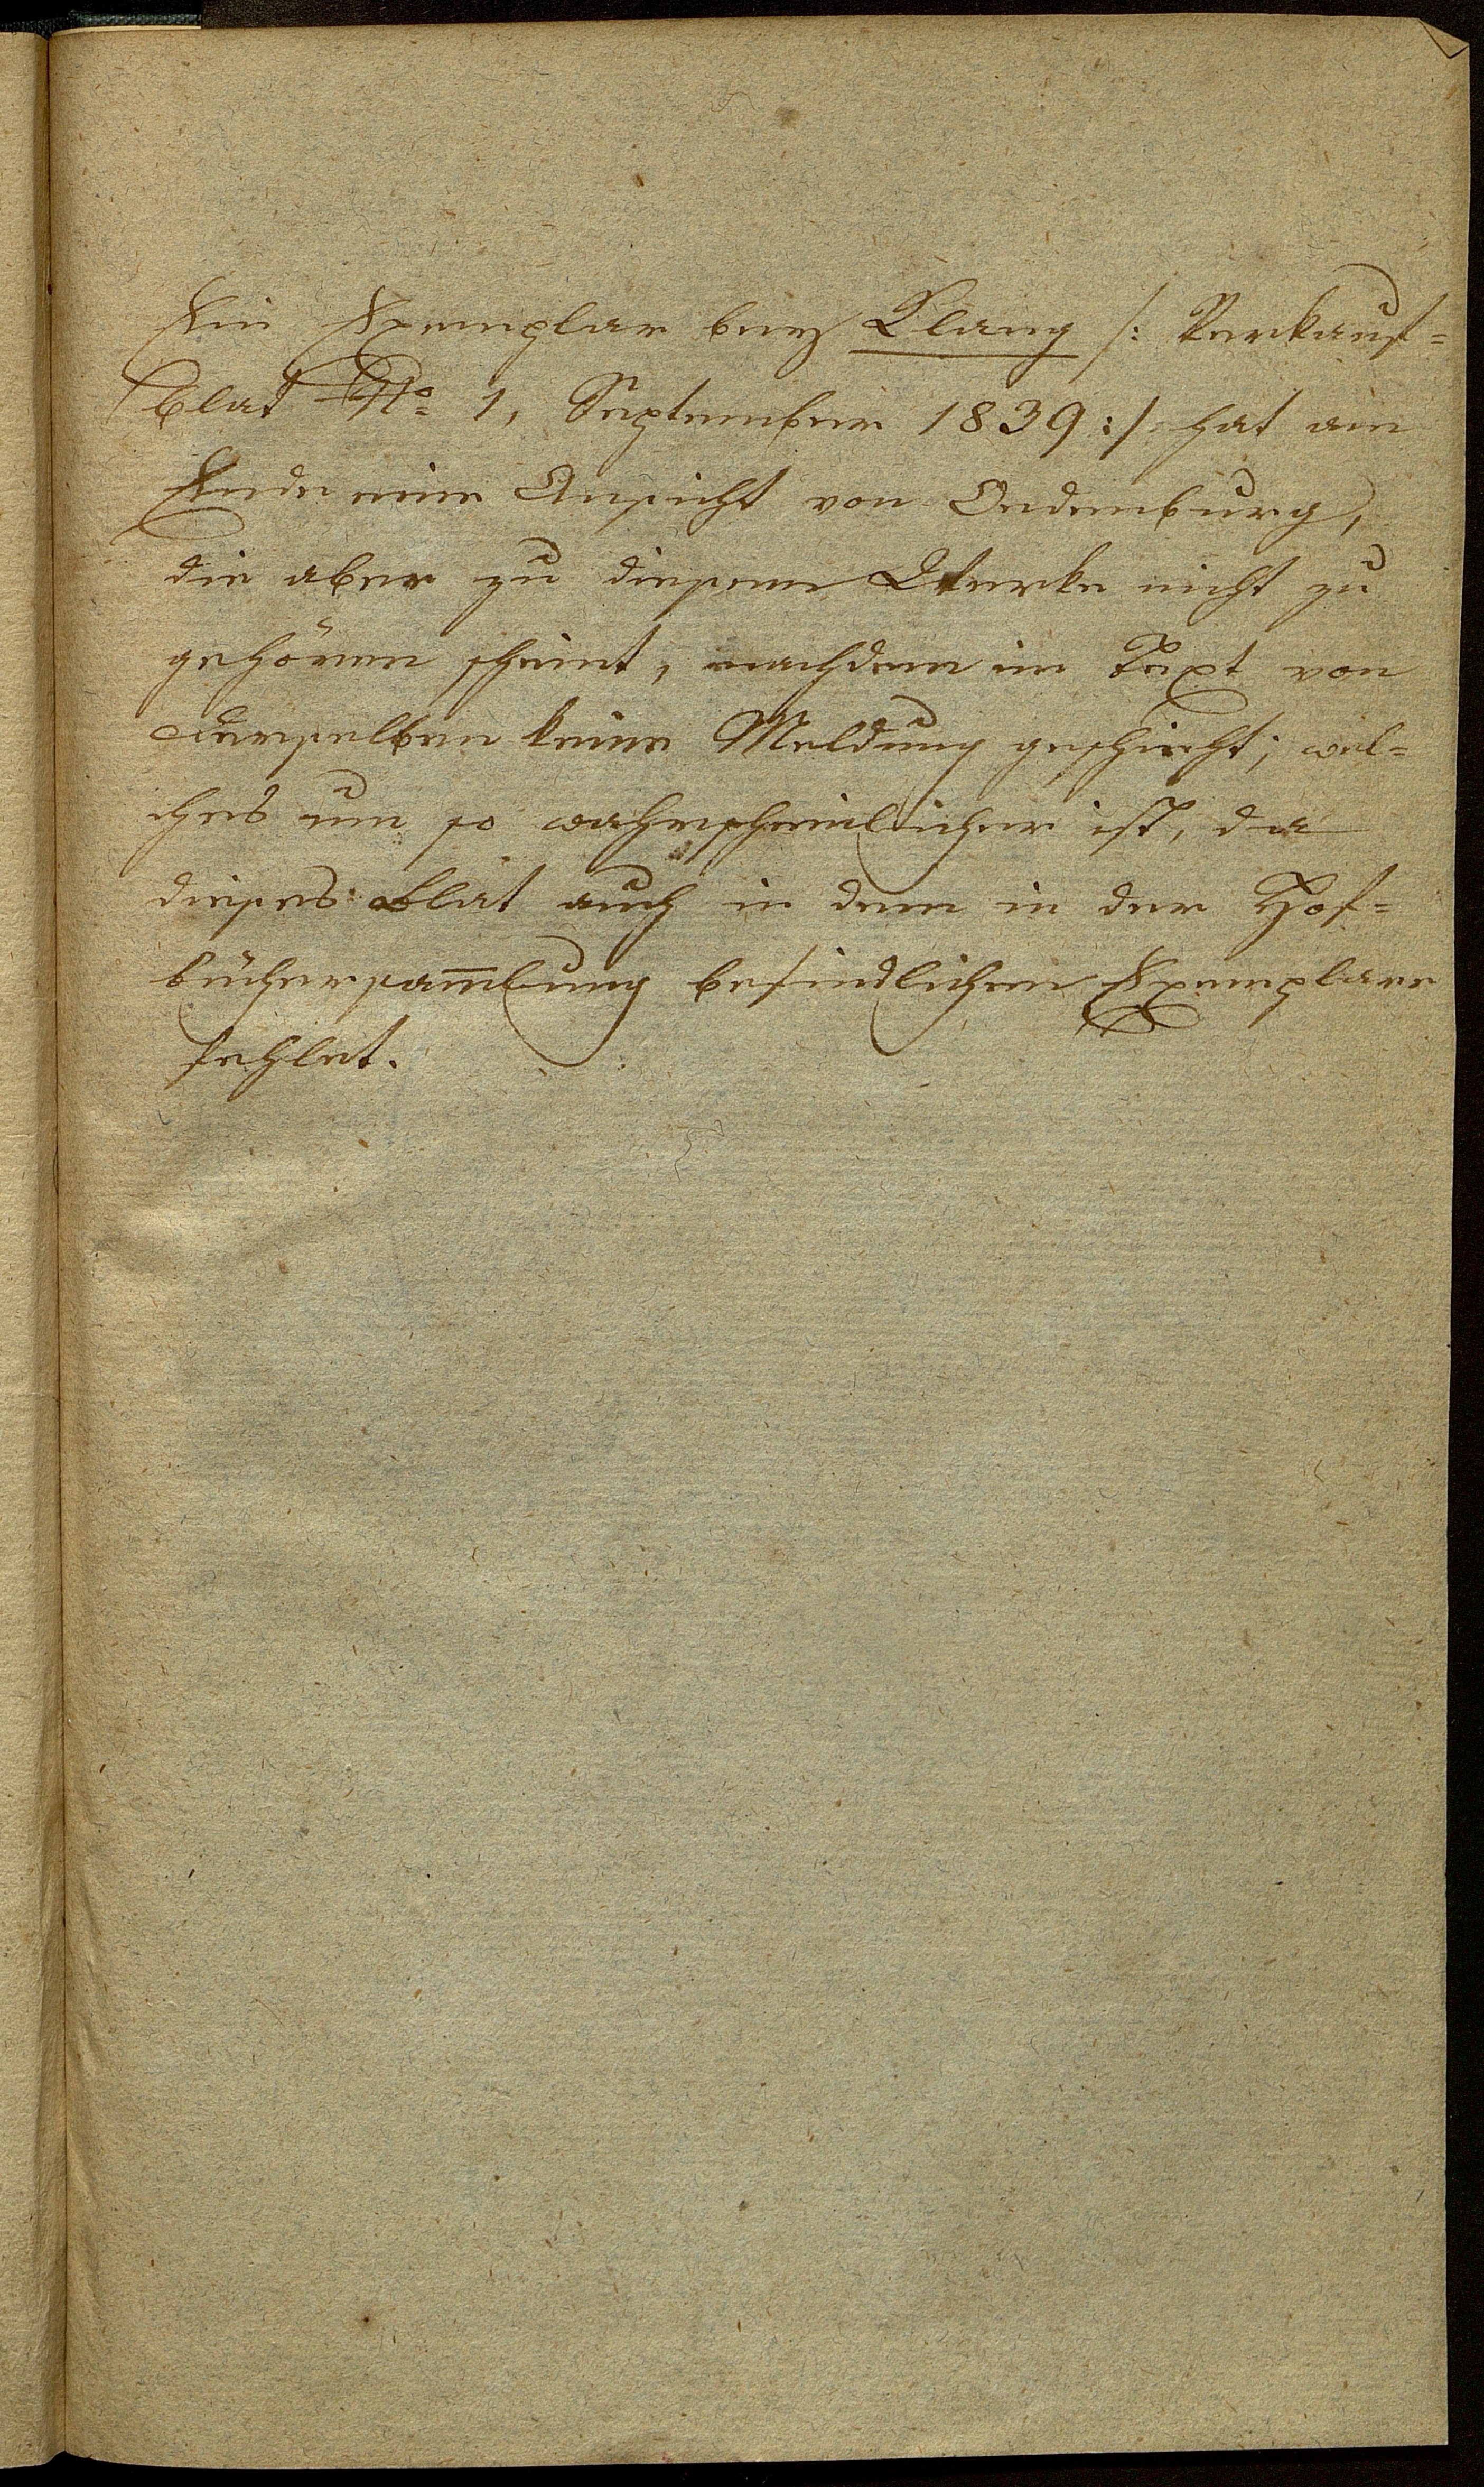 Ein Exemplar bey Klang /: Verkauf=
blat No 1, September 1839 :/ hat am
Ende eine Ansicht von Oedenburg,
die aber zu diesem Werke nicht zu
gehören scheint, nachdem im Text von
derselben keine Meldung geschieht; wel=
ches um so wahrscheinlicher ist, da
dieses Blat auch in dem in der Hof=
büchersam̅lung befindlichen Exemplare
fehlet.